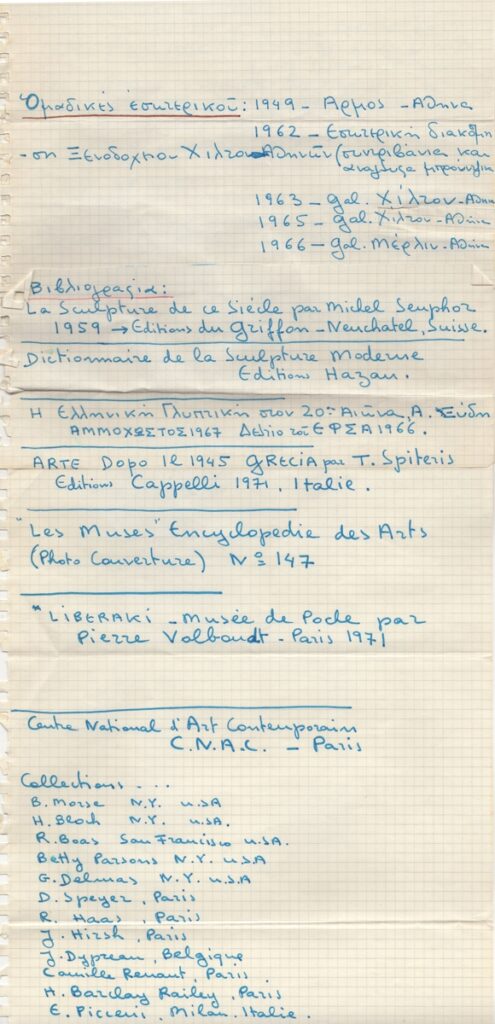 Ὁμαδικές ἐσωτερικοῦ: 1949 - Αρμος - Αθηνα
1962 - Εσωτερική διακόσμη
- ση Ξενοδοχειου Χιλτον Αθηνών (συντριβάνια και
ανάγλυφα μπρούντζινα
1963 - gal. Χίλτον - Αθηνα
1965 - gal. Χιλτον - Αθήνα
1966 - gal. Μέρλιν - Αθήνα
Βιβλιογραφια:
La Sculpture de ce Siécle par Michel Seuphor
1959 → Editions du Griffon - Neuchatel, Suisse.
Dictionnaire de la Sculpture Moderne
Editions Hazan.
Η Ελληνική Γλυπτική στον 20ον Αιῶνα, Α. Ξύδη
ΑΜΜΟΧΩΣΤΟΣ 1967 Δελτιο του ΕΦΣΑ 1966.
ARTE Dopo Il 1945 GRECIA par T. Spiteris
Editions Cappelli 1971. Italie.
"Les Muses" Encyclopedie des Arts
(Photo Couverture) Nº 147
"LIBERAKI - Musée de Poche par
Pierre Volboudt - Paris 1971
Centre National d'Art Contemporain
C.N.A.C. - Paris
Collections . . .
B. Morse N.Y. U.SA
H. Bloch N.Y. U.SA.
R. Boas San Francisco U.S.A.
Betty Parsons N.Y. U.S.A
G. Delmas N.Y. U.S.A
D. Speyer, Paris
R. Haas, Paris
J. Hirsh, Paris
J. Dypreau, Belgique
Camille Renaut, Paris.
H. Barclay Railey, Paris
E. Piccenis, Milan. Italie.